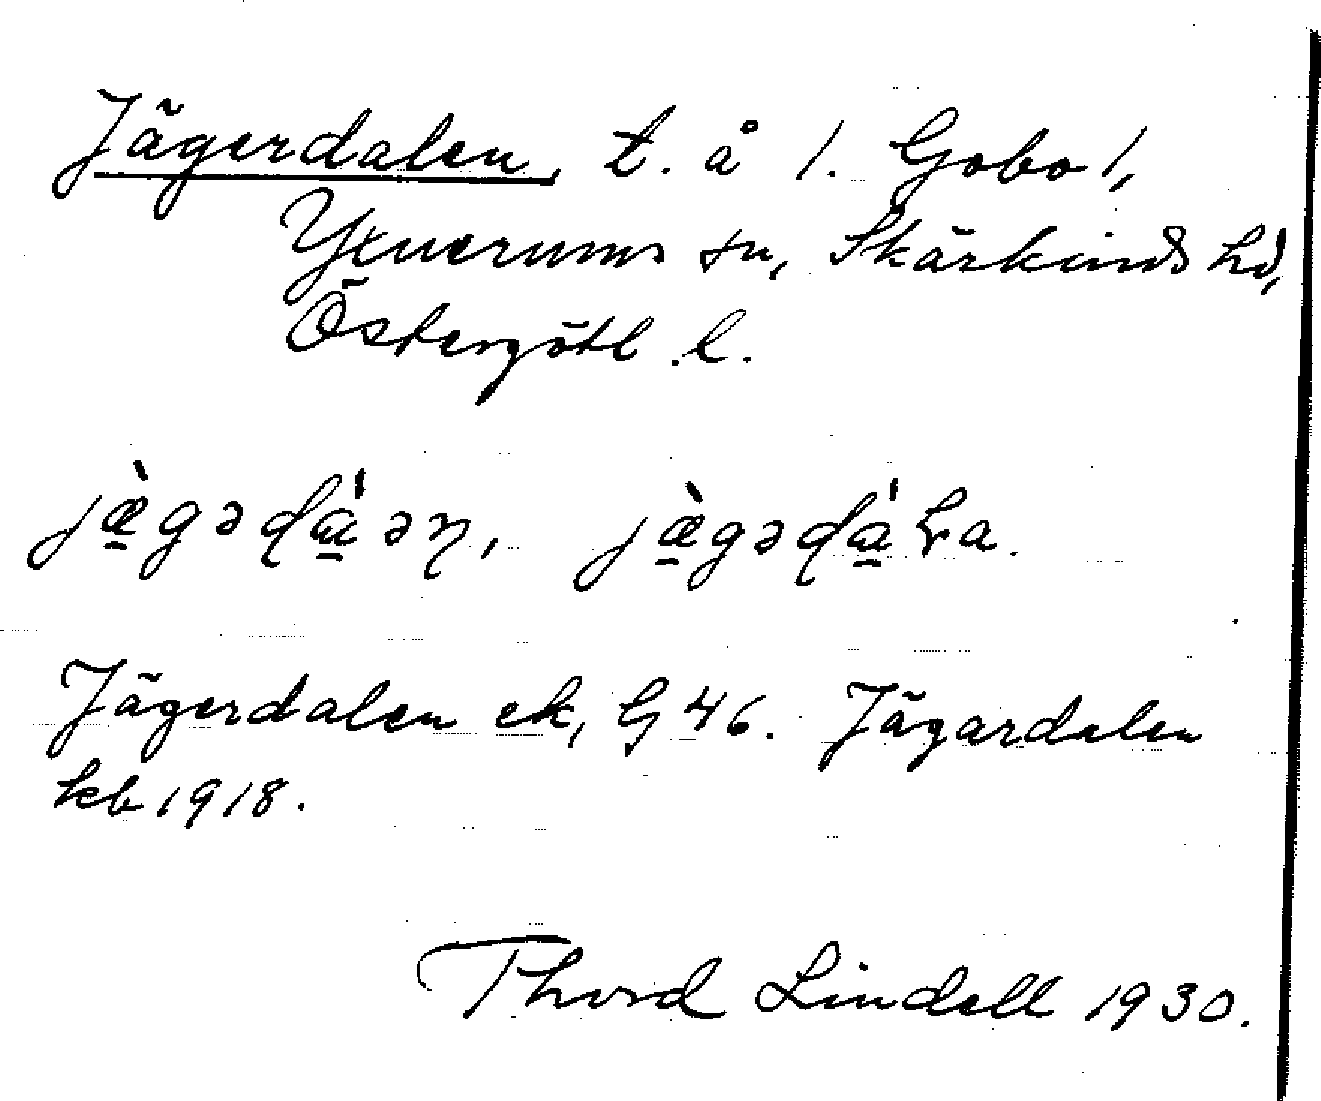 Jägerdalen, t. å 1. Gobo 1,
Yxnerums sn, Skärkinds hd,
Östergötl. l.
jæ̠̀gəɖa̠̍əɳ, jæ̠̀gəɖa̠̍ɽa.
Jägerdalen ek, G 46. Jägardalen
kb 1918.
Thord Lindell 1930.